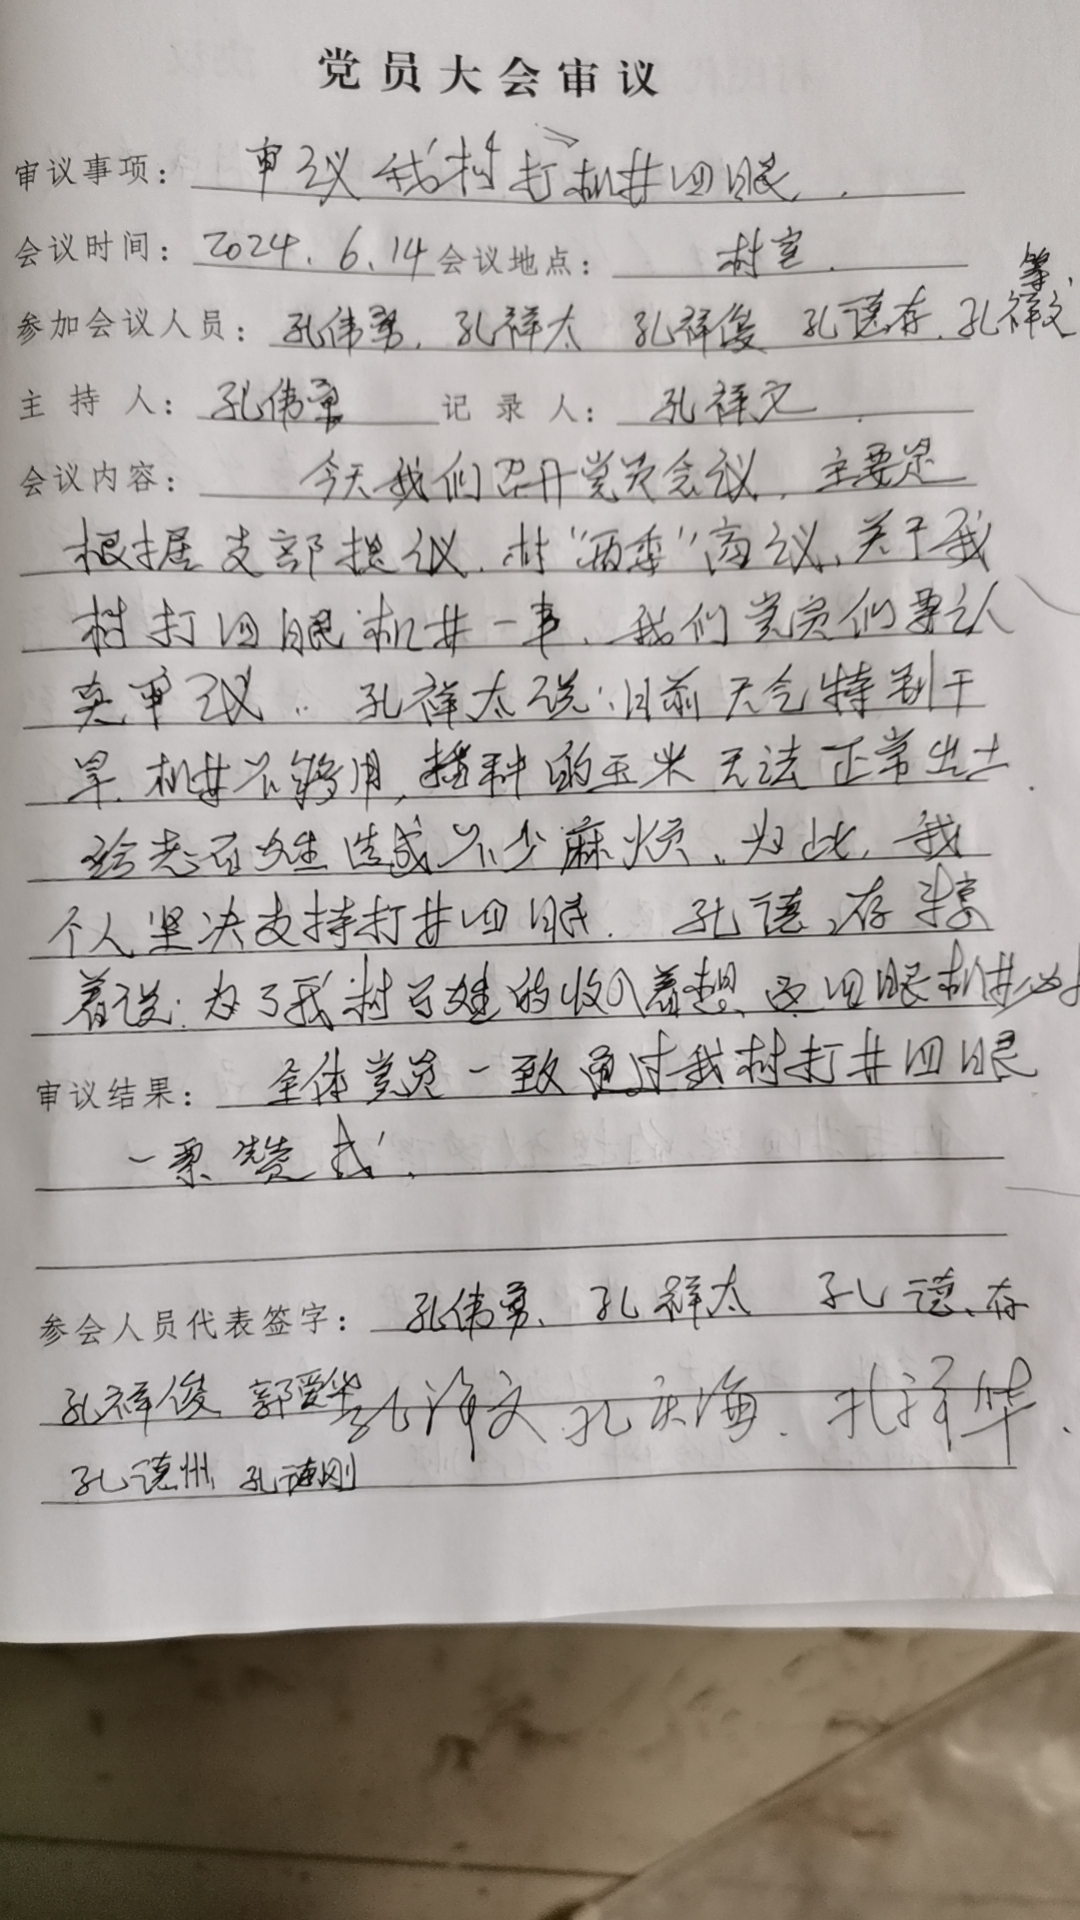 党员大会审议
审议事项：审议我村打机井四眼.
会议时间：2024.6.14 会议地点：村室.
等.
参加会议人员：孔伟勇. 孔祥太 孔祥俊 孔德存. 孔祥文
主持人：孔伟勇 记录人：孔祥文
会议内容：今天我们召开党员会议. 主要是
根据支部提议. 村“两委”商议、关于我
村打四眼机井一事、我们党员们要认
真审议.. 孔祥太说：目前天气特别干
旱. 机井不够用, 播种的玉米无法正常出土
给老百姓造成不少麻烦、为此, 我
个人坚决支持打井四眼. 孔德存
着说：为了我村百姓的收入着想、这四眼机井必
审议结果：全体党员一致通过我村打井四眼
一票赞成.
参会人员代表签字：孔伟勇、孔祥太 孔德存
孔祥俊 郭爱华 孔祥文 孔庆海. 孔祥华.
孔德州 孔德刚